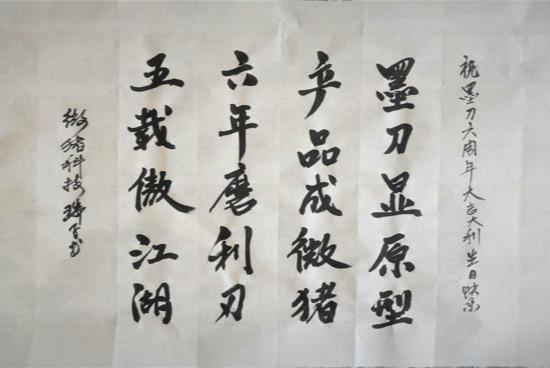 祝墨刀六周年大吉大利生日快乐
墨刀显原型
产品成微猪
六年磨利刃
五载傲江湖
微猪科技 珠子书